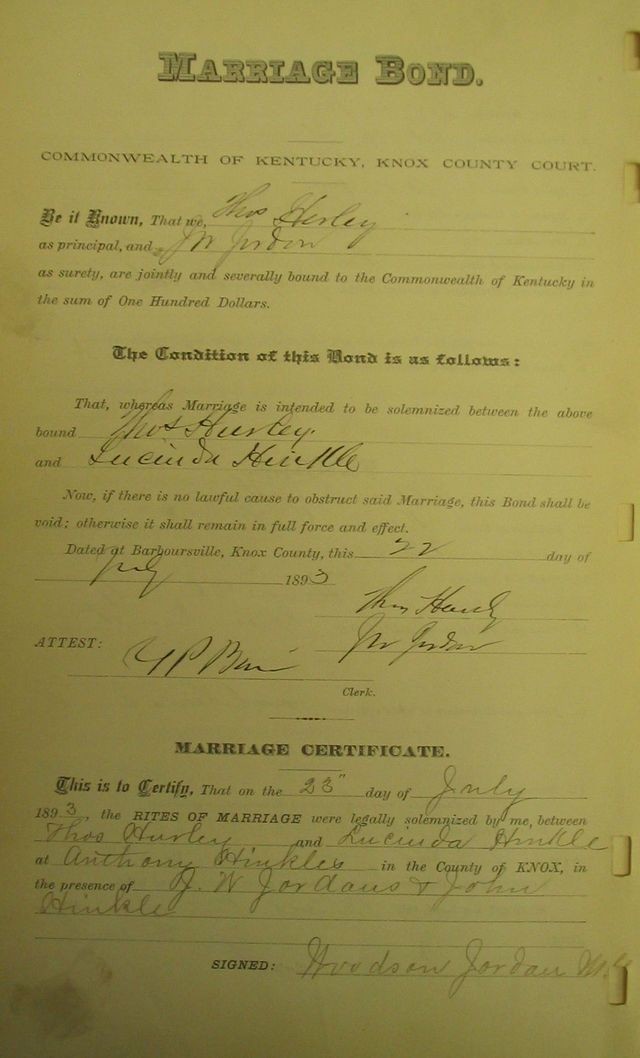 MARRIAGE BOND.
COMMONWEALTH OF KENTUCKY, KNOX COUNTY COURT.
Be it Known, That we, Thos Hurley
as principal, and Jordon
as surety, are jointly and severally bound to the Commonwealth of Kentucky in
the sum of One Hundred Dollars.
The Condition of this Bond is as follows:
That, whereas Marriage is intended to be solemnized between the above
bound Thos Hurley
and Lucinda Hinkle
Now, if there is no lawful cause to obstruct said Marriage, this Bond shall be
void; otherwise it shall remain in full force and effect.
Dated at Barboursville, Knox County, this 22 day of
July 1893
Thos Hurley
Jordon
ATTEST:
Clerk.
MARRIAGE CERTIFICATE.
This is to Certify, That on the 23" day of July
1893, the RITES OF MARRIAGE were legally solemnized by me, between
Thos Hurley and Lucinda Hinkle
at Anthony Hinkles in the County of KNOX, in
the presence of J. W Jordans & John
Hinkle
SIGNED: Woodson Jordan